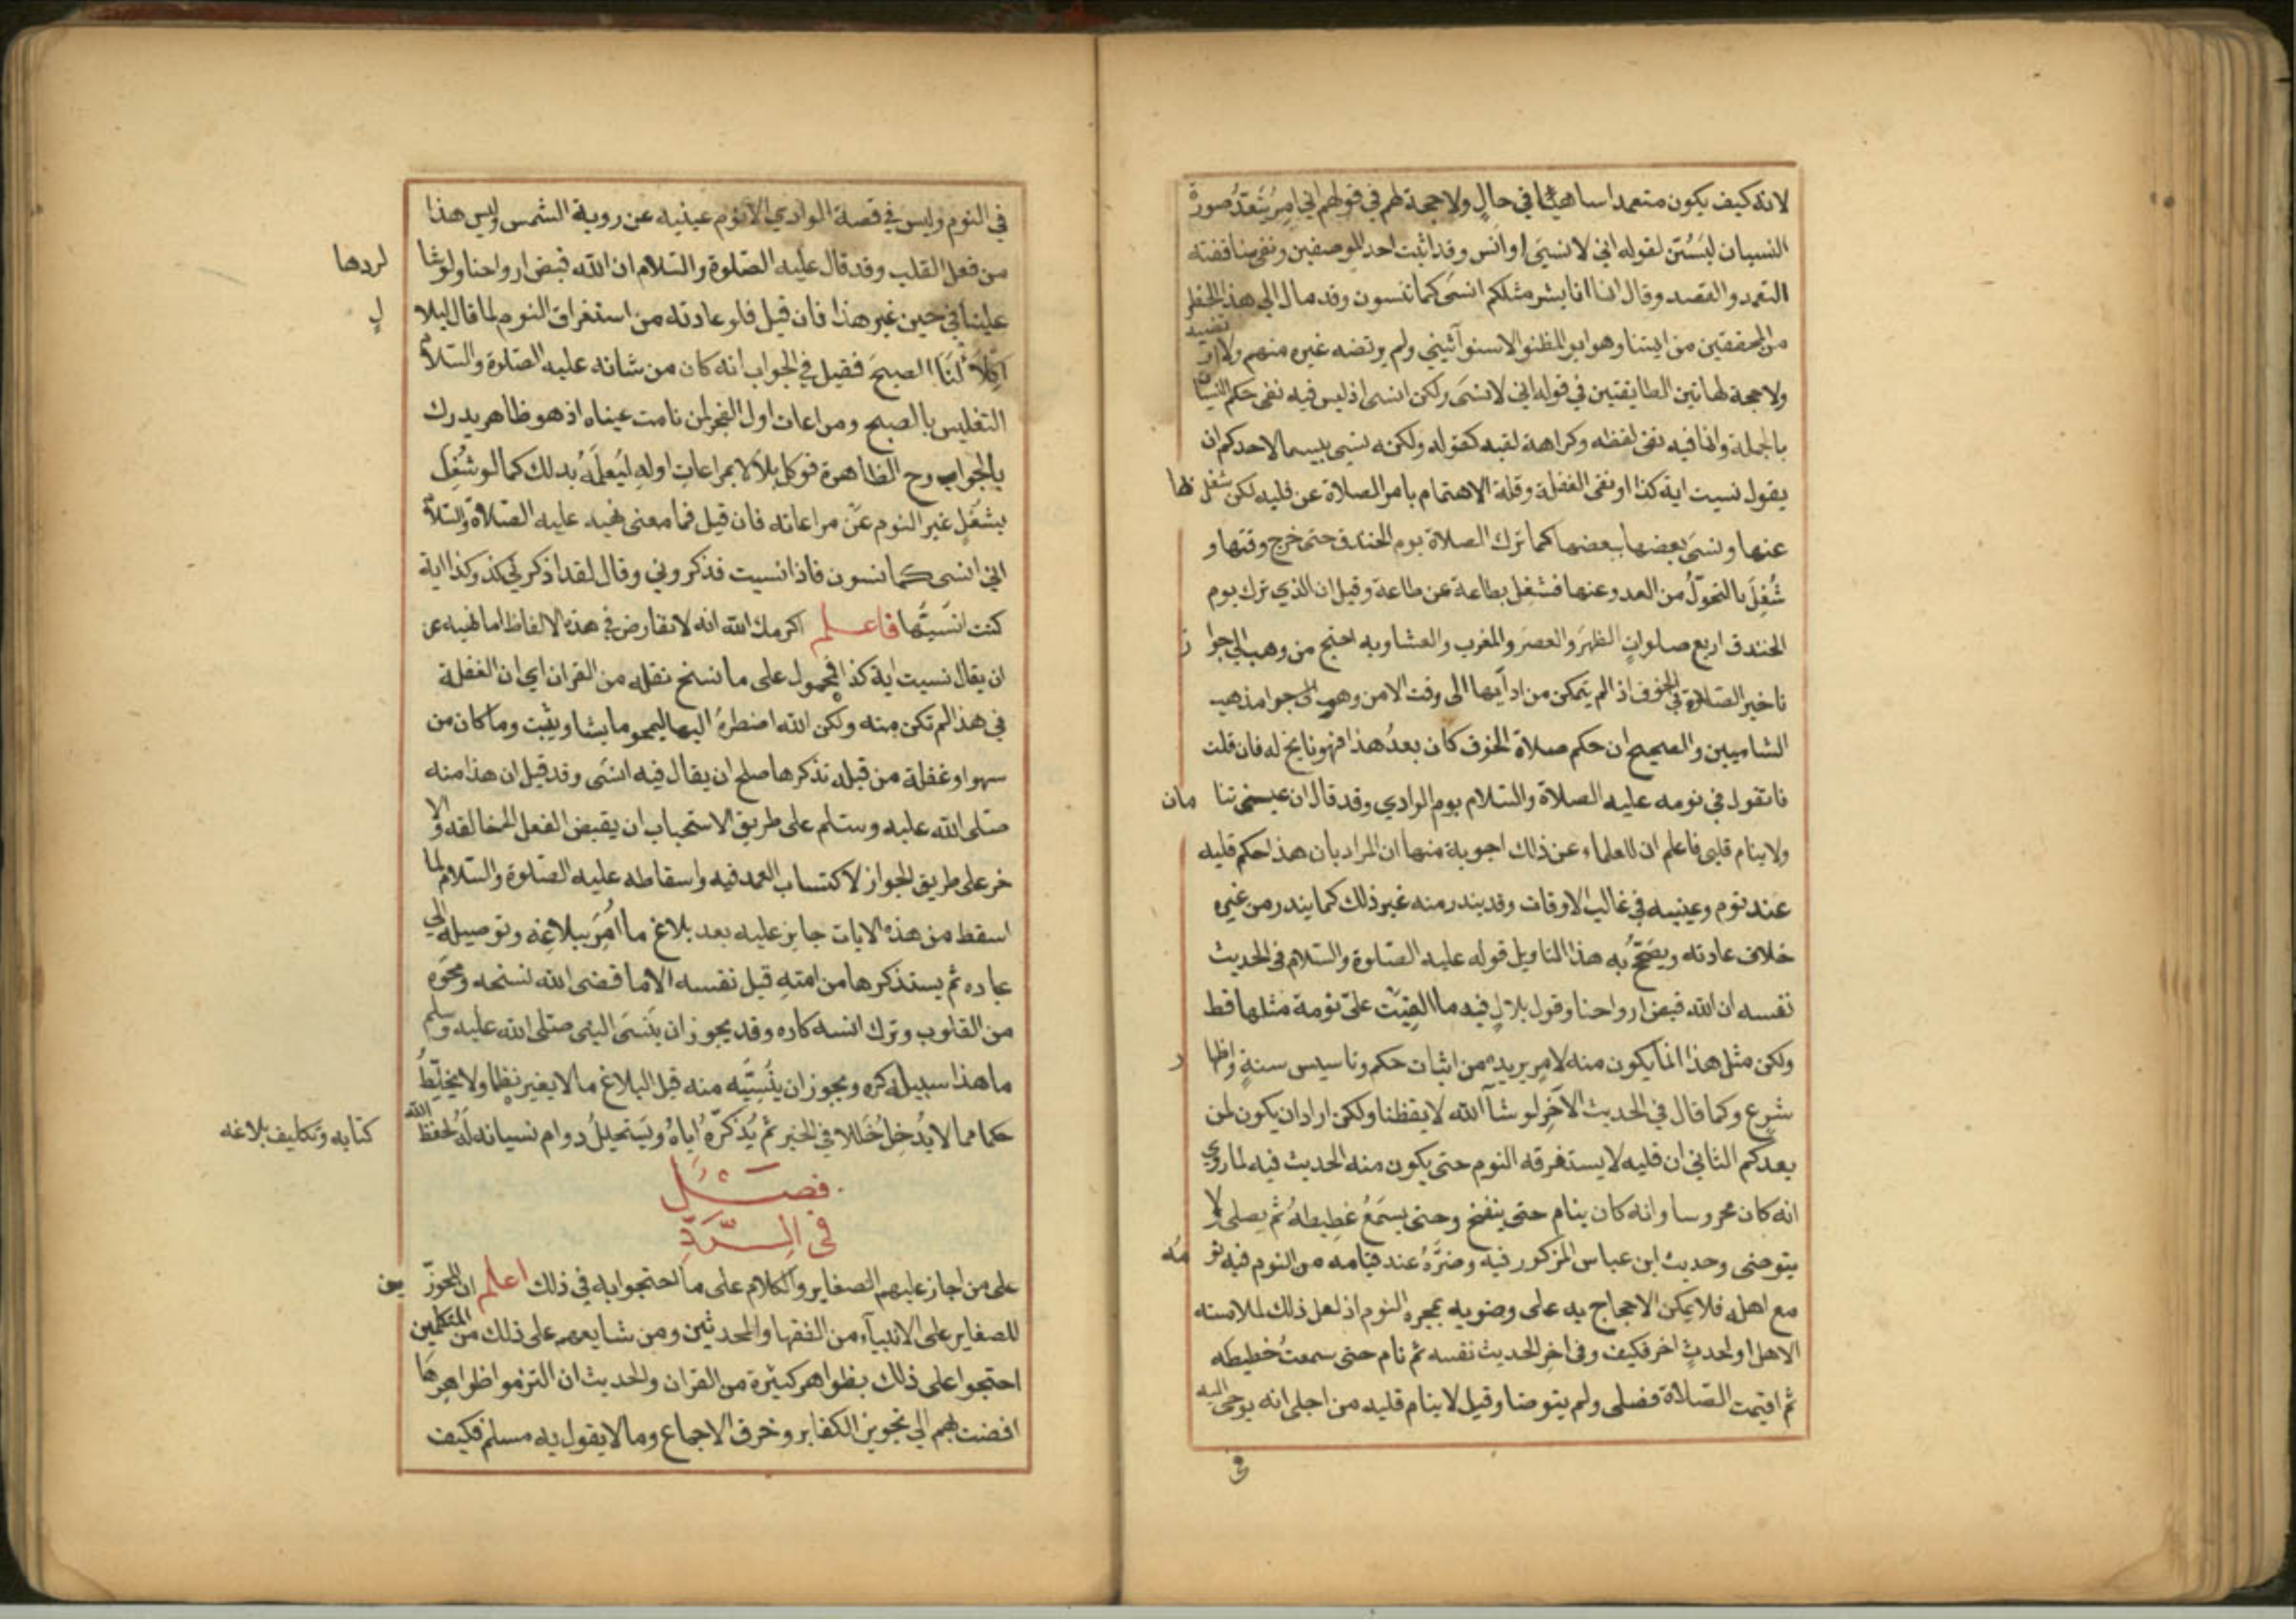 لانه كيف يكون متعمدا ساهيا في حال ولا حجة لهم في قولهم اني امر بتعمد صورة
النسيان ليستن لقوله اني لانسي او انس وقد اثبت احد الوصفين ونفي مناقضته
التعمد والقصد وقال انما انا بشر مثلكم انسي كما تنسون وقد مال الي هذا عظيم
من المحققين من ايمتنا وهو ابو المظفر الاسفرايني ولم يرتضه غيره منهم ولا ارتضيه
ولا حجة لهاتين الطايفتين في قوله اني لا انسي ولكن انسي اذ ليس فيه نفي حكم النسيان
بالجملة وانما فيه نفي لفظه وكراهة لقبه كقوله ولكنه نسي بيسما لاحدكم ان
يقول نسيت اية كذا او نفي الغفلة وقلة الاهتمام بامر الصلاة عن قلبه لكن شغل بها
عنها ونسي بعضها ببعضها كما ترك الصلاة يوم الخندق حتى خرج وقتها و
شغل بالتحول من العدو عنها فشغل بطاعة عن طاعة وقيل ان الذي ترك يوم
الخندق اربع صلوات الظهر والعصر والمغرب والعشا وبه احتج من وهب الي جواز
تاخير الصلاة في الخوف اذا لم يتمكن من ادآيها الى وقت الامن وهو مذهب
الشاميين والصحيح ان حكم صلاة الخوف كان بعد هذا فهو ناسخ له فان قلت
فما تقول في نومه عليه الصلاة والسلام يوم الوادي وقد قال ان عيني تنامان
ولا ينام قلبي فاعلم ان للعلماء عن ذلك اجوبة منها ان المراد بان هذا حكم قلبه
عند نوم وعينيه في غالب الاوقات وقد يندر منه غير ذلك كما يندر من غيره
خلاف عادته ويصحح به هذا التاويل قوله عليه الصلوة والسلام في الحديث
نفسه ان الله قبض ارواحنا وقول بلال فيه ما القيت علي نومة مثلها قط
ولكن مثل هذا انما يكون منه لامر يريده من اثبات حكم وتاسيس سنة واظهار
شرع وكما قال في الحديث الاخر لو شآ الله لايقظنا ولكن اراد ان يكون لمن
بعدكم الثاني ان قلبه لا يستغرقه النوم حتى يكون منه الحديث فيه لما روي
انه كان محروسا وانه كان ينام حتى ينفخ وحتى يسمع غطيطه ثم يصلي ولا
يتوضى وحديث ابن عباس المزكور فيه وضوه عند قيامه من النوم فيه نومه
مع اهله فلا يمكن الاحجاج به على وضويه بمجرد النوم اذ لعل ذلك لملامسته
الاهل او لحدث اخر فكيف وفي اخر الحديث نفسه ثم نام حتى سمعت خطيطه
ثم اقيمت الصلاة فصلى ولم يتوضا وقيل لا ينام قلبه من اجل انه يوحى اليه
في
في النوم وليس في قصة الوادي الا نوم عينيه عن روية الشمس وليس هذا
من فعل القلب وقد قال عليه الصلوة والسلام ان الله قبض ارواحنا ولو شا لردها
علينا في حين غير هذا فان قيل فلو عادته من استغراق النوم لما قال لبلال
اكلا لنا الصبح فقيل في الجواب انه كان من شانه عليه الصلوة والسلام
التغليس بالصبح ومراعات اول الفجر لمن نامت عيناه اذ هو ظاهر يدرك
بالجوارح الظاهرة فوكل بلالا بمراعات اوله ليعلمه بذلك كما لو شغل
بشغل غير النوم عن مراعاته فان قيل فما معنى نهيه عليه الصلاة والسلام
اني انسى كما تنسون فاذا نسيت فذكروني وقال لقد اذكرني كذا وكذا اية
كنت انسيتها فاعلم اكرمك الله انه لا تعارض في هذه الالفاظ اما نهيه عن
ان يقال نسيت اية كذا فمحمول على ما نسخ نقله من القران اي ان الغفلة
في هذا لم تكن منه ولكن الله اضطره اليها ليمحو ما يشا ويثبت وما كان من
سهو او غفلة من قبله تذكرها صلح ان يقال فيه انسى وقد قيل ان هذا منه
صلى الله عليه وسلم على طريق الاستحباب ان يقبض الفعل الى خالقه والا
خر على طريق الجواز لاكتساب العبد فيه واسقاطه عليه الصلوة والسلام لما
اسقط من هذه الايات جايز عليه بعد بلاغ ما امر ببلاغه وتوصيله الي
عباده ثم يستذكرها من امته قبل نفسه الا ما قضى الله نسخه ومحوه
من القلوب وترك انسه كاره وقد يجوز ان ينسى النبي صلى الله عليه وسلم
ما هذا سبيله كره ويجوز ان ينسيه منه قبل البلاغ ما لا يغير نظما ولا يخلط
حكما مما لا يدخل خللا في الخبر ثم يذكره اياه ويستحيل دوام نسيانه له لحفظ الله كتابه وتكليف بلاغه
فصل
في الرد
على من اجاز عليهم الصغاير والكلام على ما احتجوا به في ذلك اعلم ان المجوزين
للصغاير على الانبيآء من الفقها والمحدثين ومن شايعهم على ذلك من المتكلمين
احتجوا على ذلك بظواهر كثيرة من القران والحديث ان التزموا ظواهرها
افضت بهم الي تجويز الكفاير وخرق الاجماع وما لا يقول به مسلم فكيف